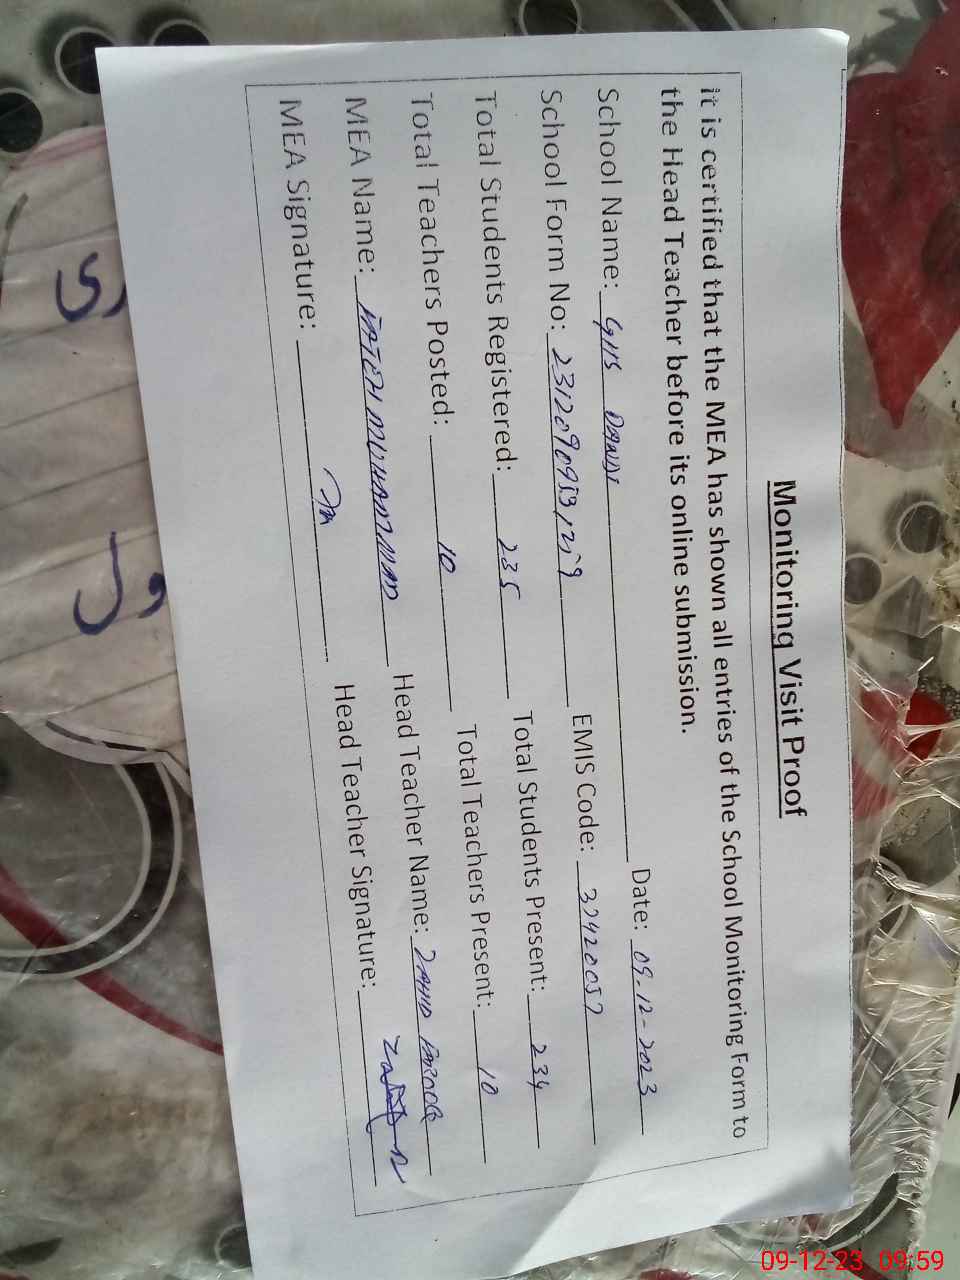 Monitoring Visit Proof
it is certified that the MEA has shown all entries of the School Monitoring Form to
the Head Teacher before its online submission.
School Name: GHS Date: 09-12-2023
School Form No: EMIS Code: 37420057
Total Students Registered: 235 Total Students Present: 234
Total Teachers Posted: 10 Total Teachers Present: 10
MEA Name: FATEH MUHAMMAD Head Teacher Name: ZAHID FAROOQ
MEA Signature: Head Teacher Signature:
09-12-23 09:59